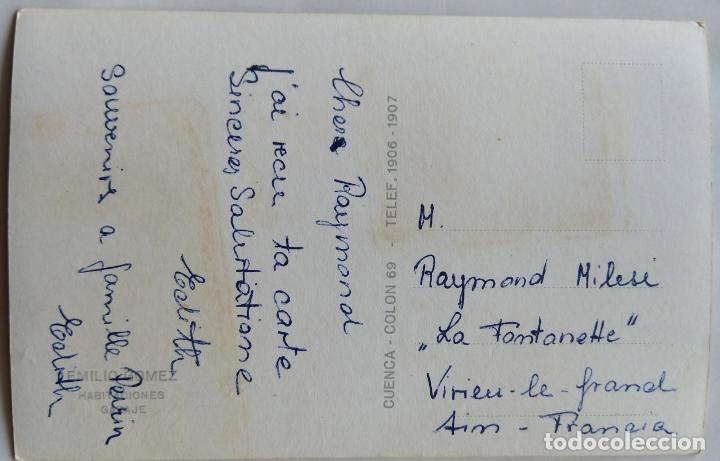 Chere Raymond
j'ai recu ta carte
Sinceres Salutations
Edith
souvenirs a famille Perrin
Edith
EMILIO GOMEZ
HABITACIONES
GARAJE
CUENCA - COLON 69 - TELEF. 1906 - 1907
M.
Raymond Milesi
"La Fontanette"
Virieu-le-Grand
Ain - Francia
todocoleccion.net